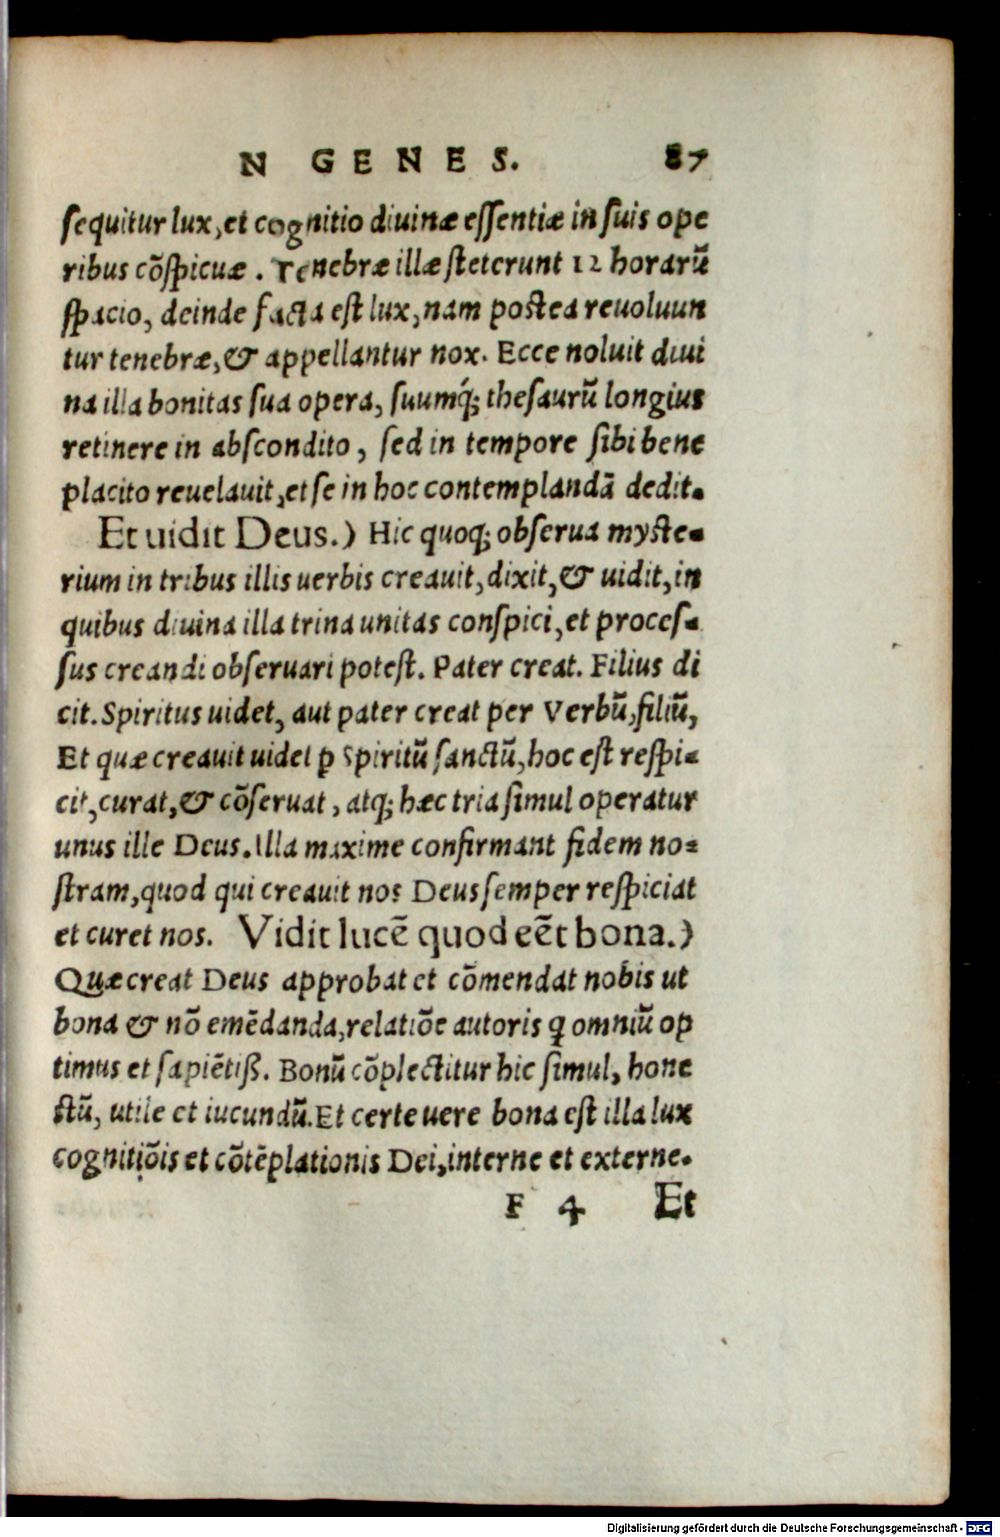 N GENES. 87
sequitur lux, et cognitio diuinæ essentiæ in suis ope
ribus cōspicuæ. Tenebræ illæ steterunt 12 horarū
spacio, deinde facta est lux, nam postea reuoluun
tur tenebræ, & appellantur nox. Ecce noluit diui
na illa bonitas sua opera, suumq́; thesaurū longius
retinere in abscondito, sed in tempore sibi bene
placito reuelauit, et se in hoc contemplandā dedit.
Et uidit Deus.) Hic quoq; obserua myste-
rium in tribus illis uerbis creauit, dixit, & uidit, in
quibus diuina illa trina unitas conspici, et proces-
sus creandi obseruari potest. Pater creat. Filius di
cit. Spiritus uidet, aut pater creat per Verbū, filiū,
Et quæ creauit uidet ꝑ Spiritū sanctū, hoc est respi-
cit, curat, & cōseruat, atq; hæc tria simul operatur
unus ille Deus. Illa maxime confirmant fidem no-
stram, quod qui creauit nos Deus semper respiciat
et curet nos. Vidit lucē quod eēt bona.)
Quæ creat Deus approbat et cōmendat nobis ut
bona & nō emēdanda, relatiōe autoris q omniū op
timus et sapiētiß. Bonū cōplectitur hic simul, hone
stū, utile et iucundū. Et certe uere bona est illa lux
cognitiōis et cōtēplationis Dei, interne et externe.
F 4 Et
Digitalisierung gefördert durch die Deutsche Forschungsgemeinschaft - DFG